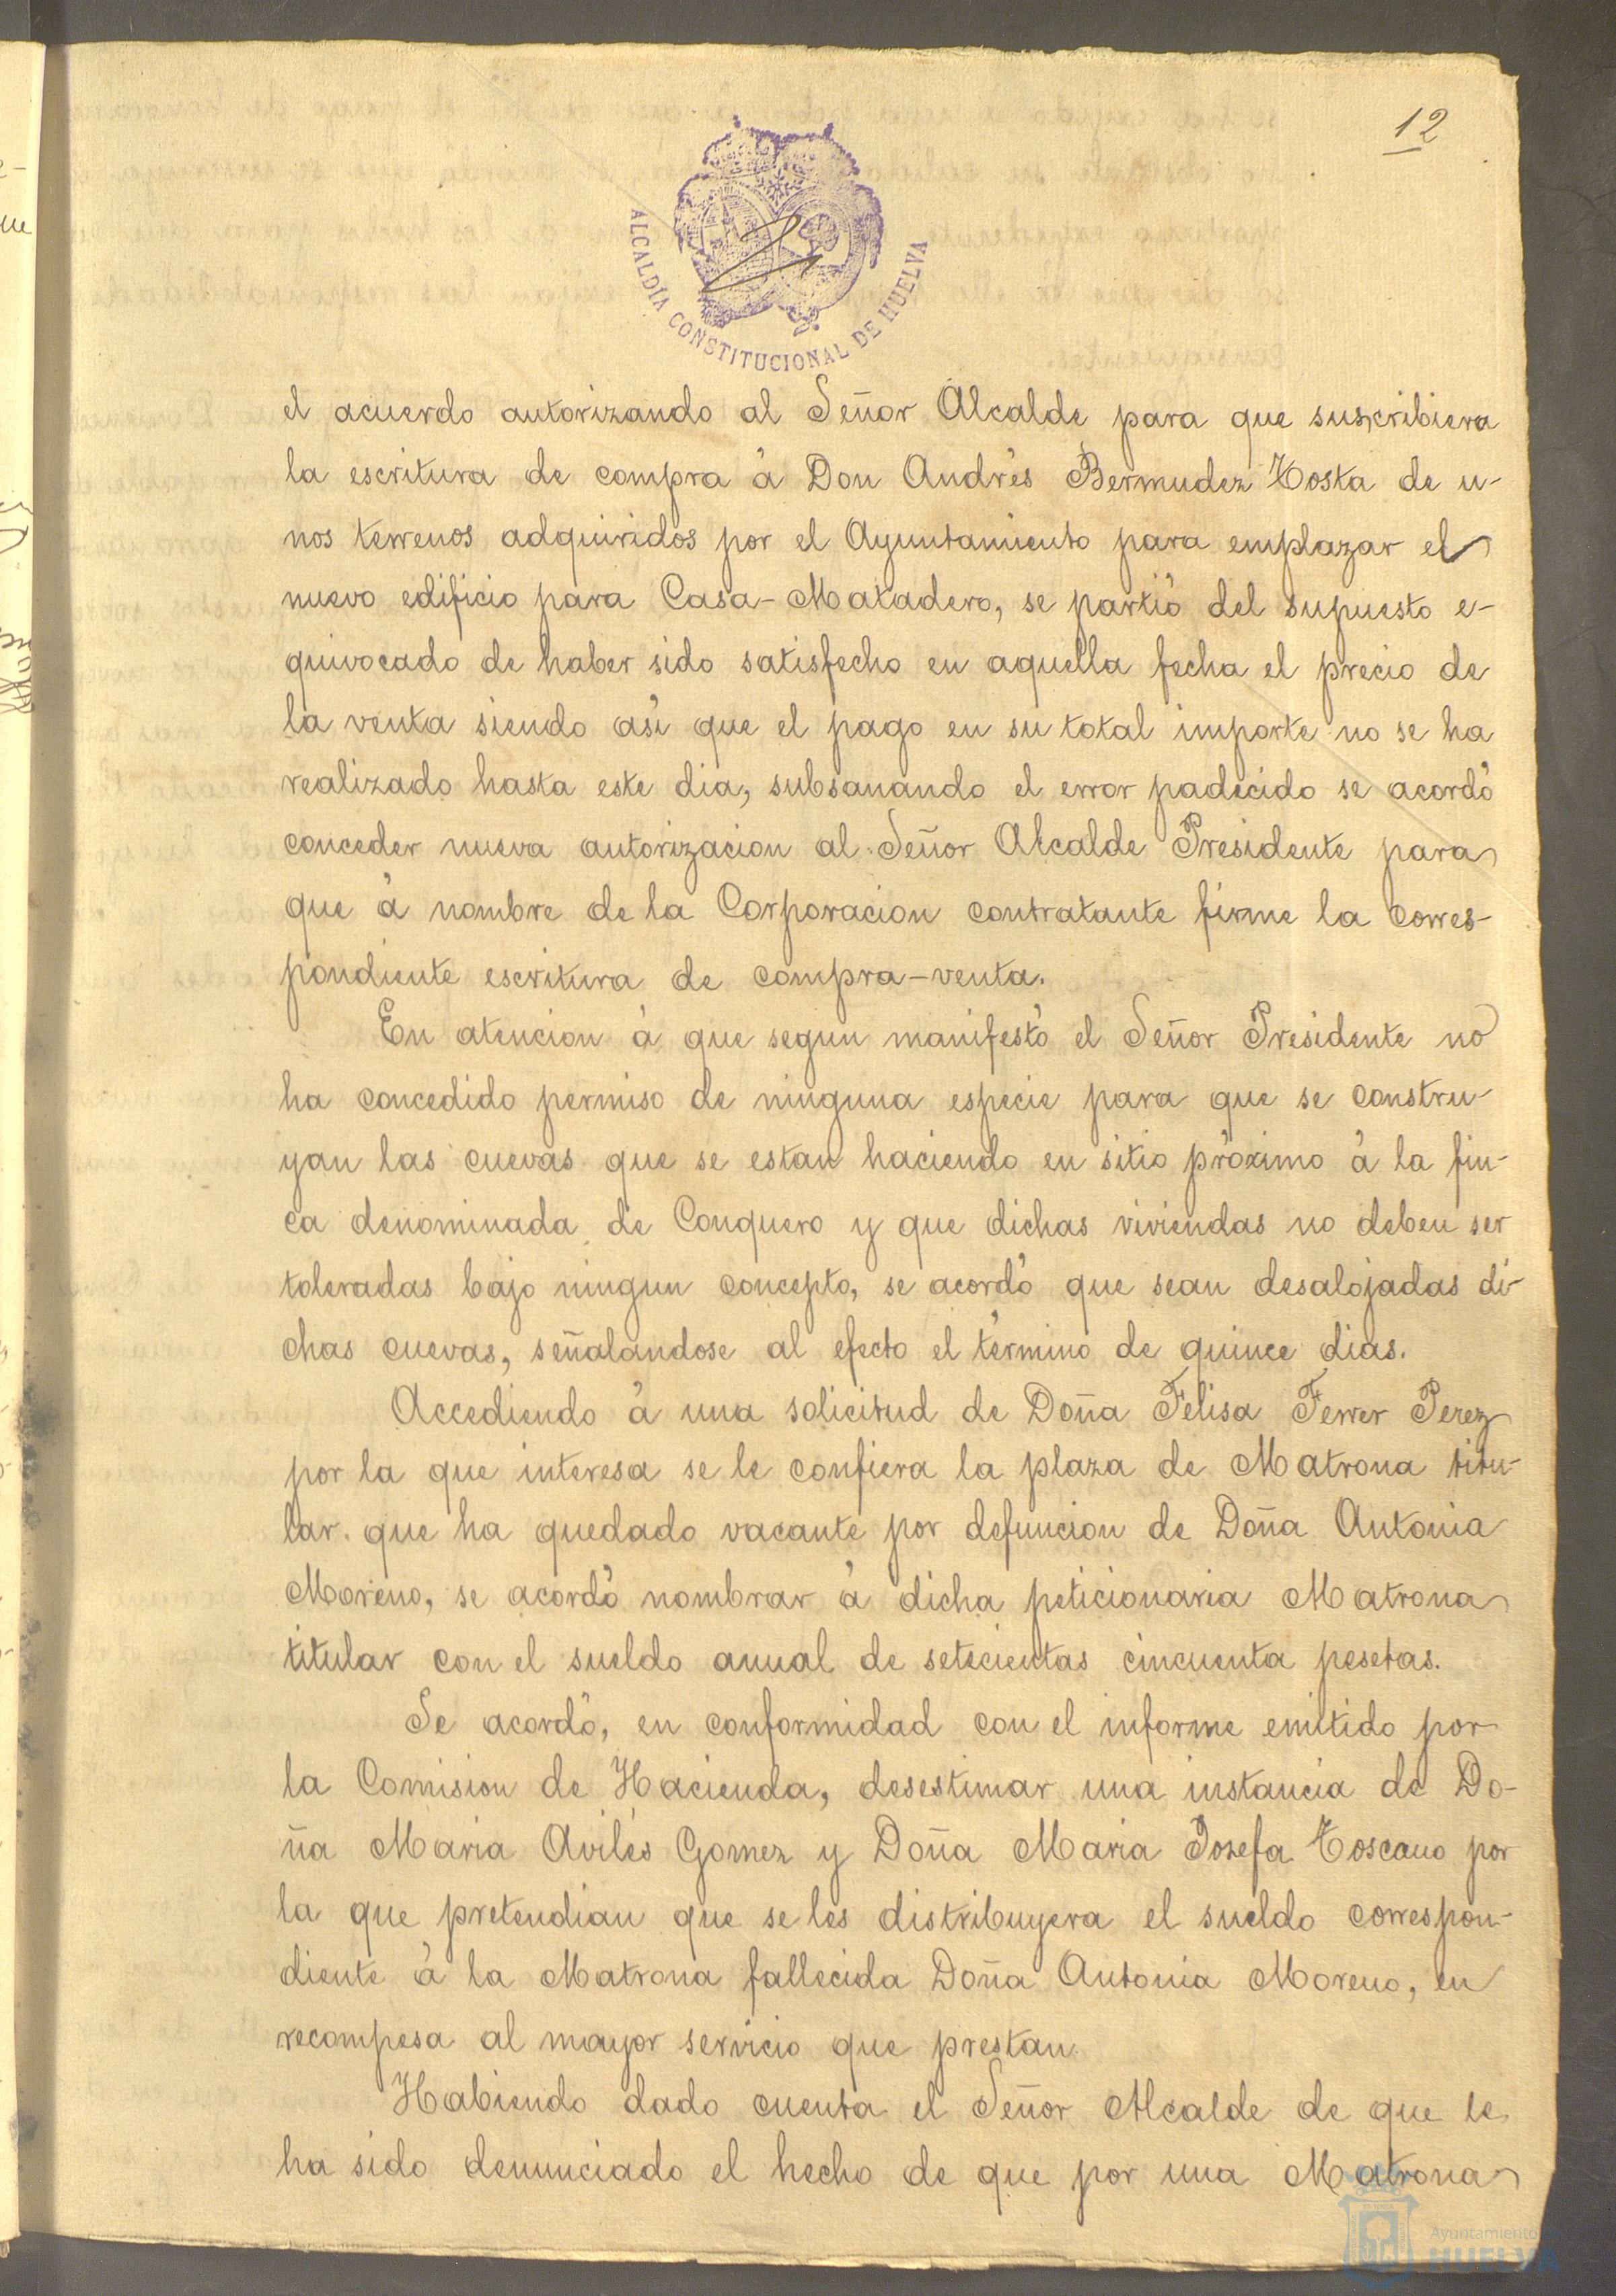 12
ALCALDÍA CONSTITUCIONAL DE HUELVA
el acuerdo autorizando al Señor Alcalde para que suscribiera
la escritura de compra á Don Andrés Bermudez Tosta de u-
nos terrenos adquiridos por el Ayuntamiento para emplazar el
nuevo edificio para Casa-Matadero, se partió del supuesto e-
quivocado de haber sido satisfecho en aquella fecha el precio de
la venta siendo así que el pago en su total importe no se ha
realizado hasta este dia, subsanando el error padecido se acordó
conceder nueva autorizacion al Señor Alcalde Presidente para
que á nombre de la Corporacion contratante firme la corres-
pondiente escritura de compra-venta.
En atencion á que segun manifestó el Señor Presidente no
ha concedido permiso de ninguna especie para que se constru-
yan las cuevas que se estan haciendo en sitio próximo á la fin-
ca denominada de Conquero y que dichas viviendas no deben ser
toleradas bajo ningun concepto, se acordó que sean desalojadas di-
chas cuevas, señalandose al efecto el término de quince dias.
Accediendo á una solicitud de Doña Felisa Ferrer Perez
por la que interesa se le confiera la plaza de Matrona titu-
lar que ha quedado vacante por defuncion de Doña Antonia
Moreno, se acordó nombrar á dicha peticionaria Matrona
titular con el sueldo anual de setecientas cincuenta pesetas.
Se acordó, en conformidad con el informe emitido por
la Comision de Hacienda, desestimar una instancia de Do-
ña Maria Avilés Gomez y Doña Maria Josefa Toscano por
la que pretendian que se les distribuyera el sueldo correspon-
diente á la Matrona fallecida Doña Antonia Moreno, en
recompesa al mayor servicio que prestan.
Habiendo dado cuenta el Señor Alcalde de que le
ha sido denunciado el hecho de que por una Matrona
Ayuntamiento
HUELVA